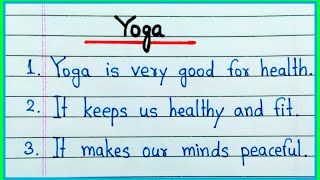 Yoga
1. Yoga is very good for health.
2. It keeps us healthy and fit.
3. It makes our minds peaceful.